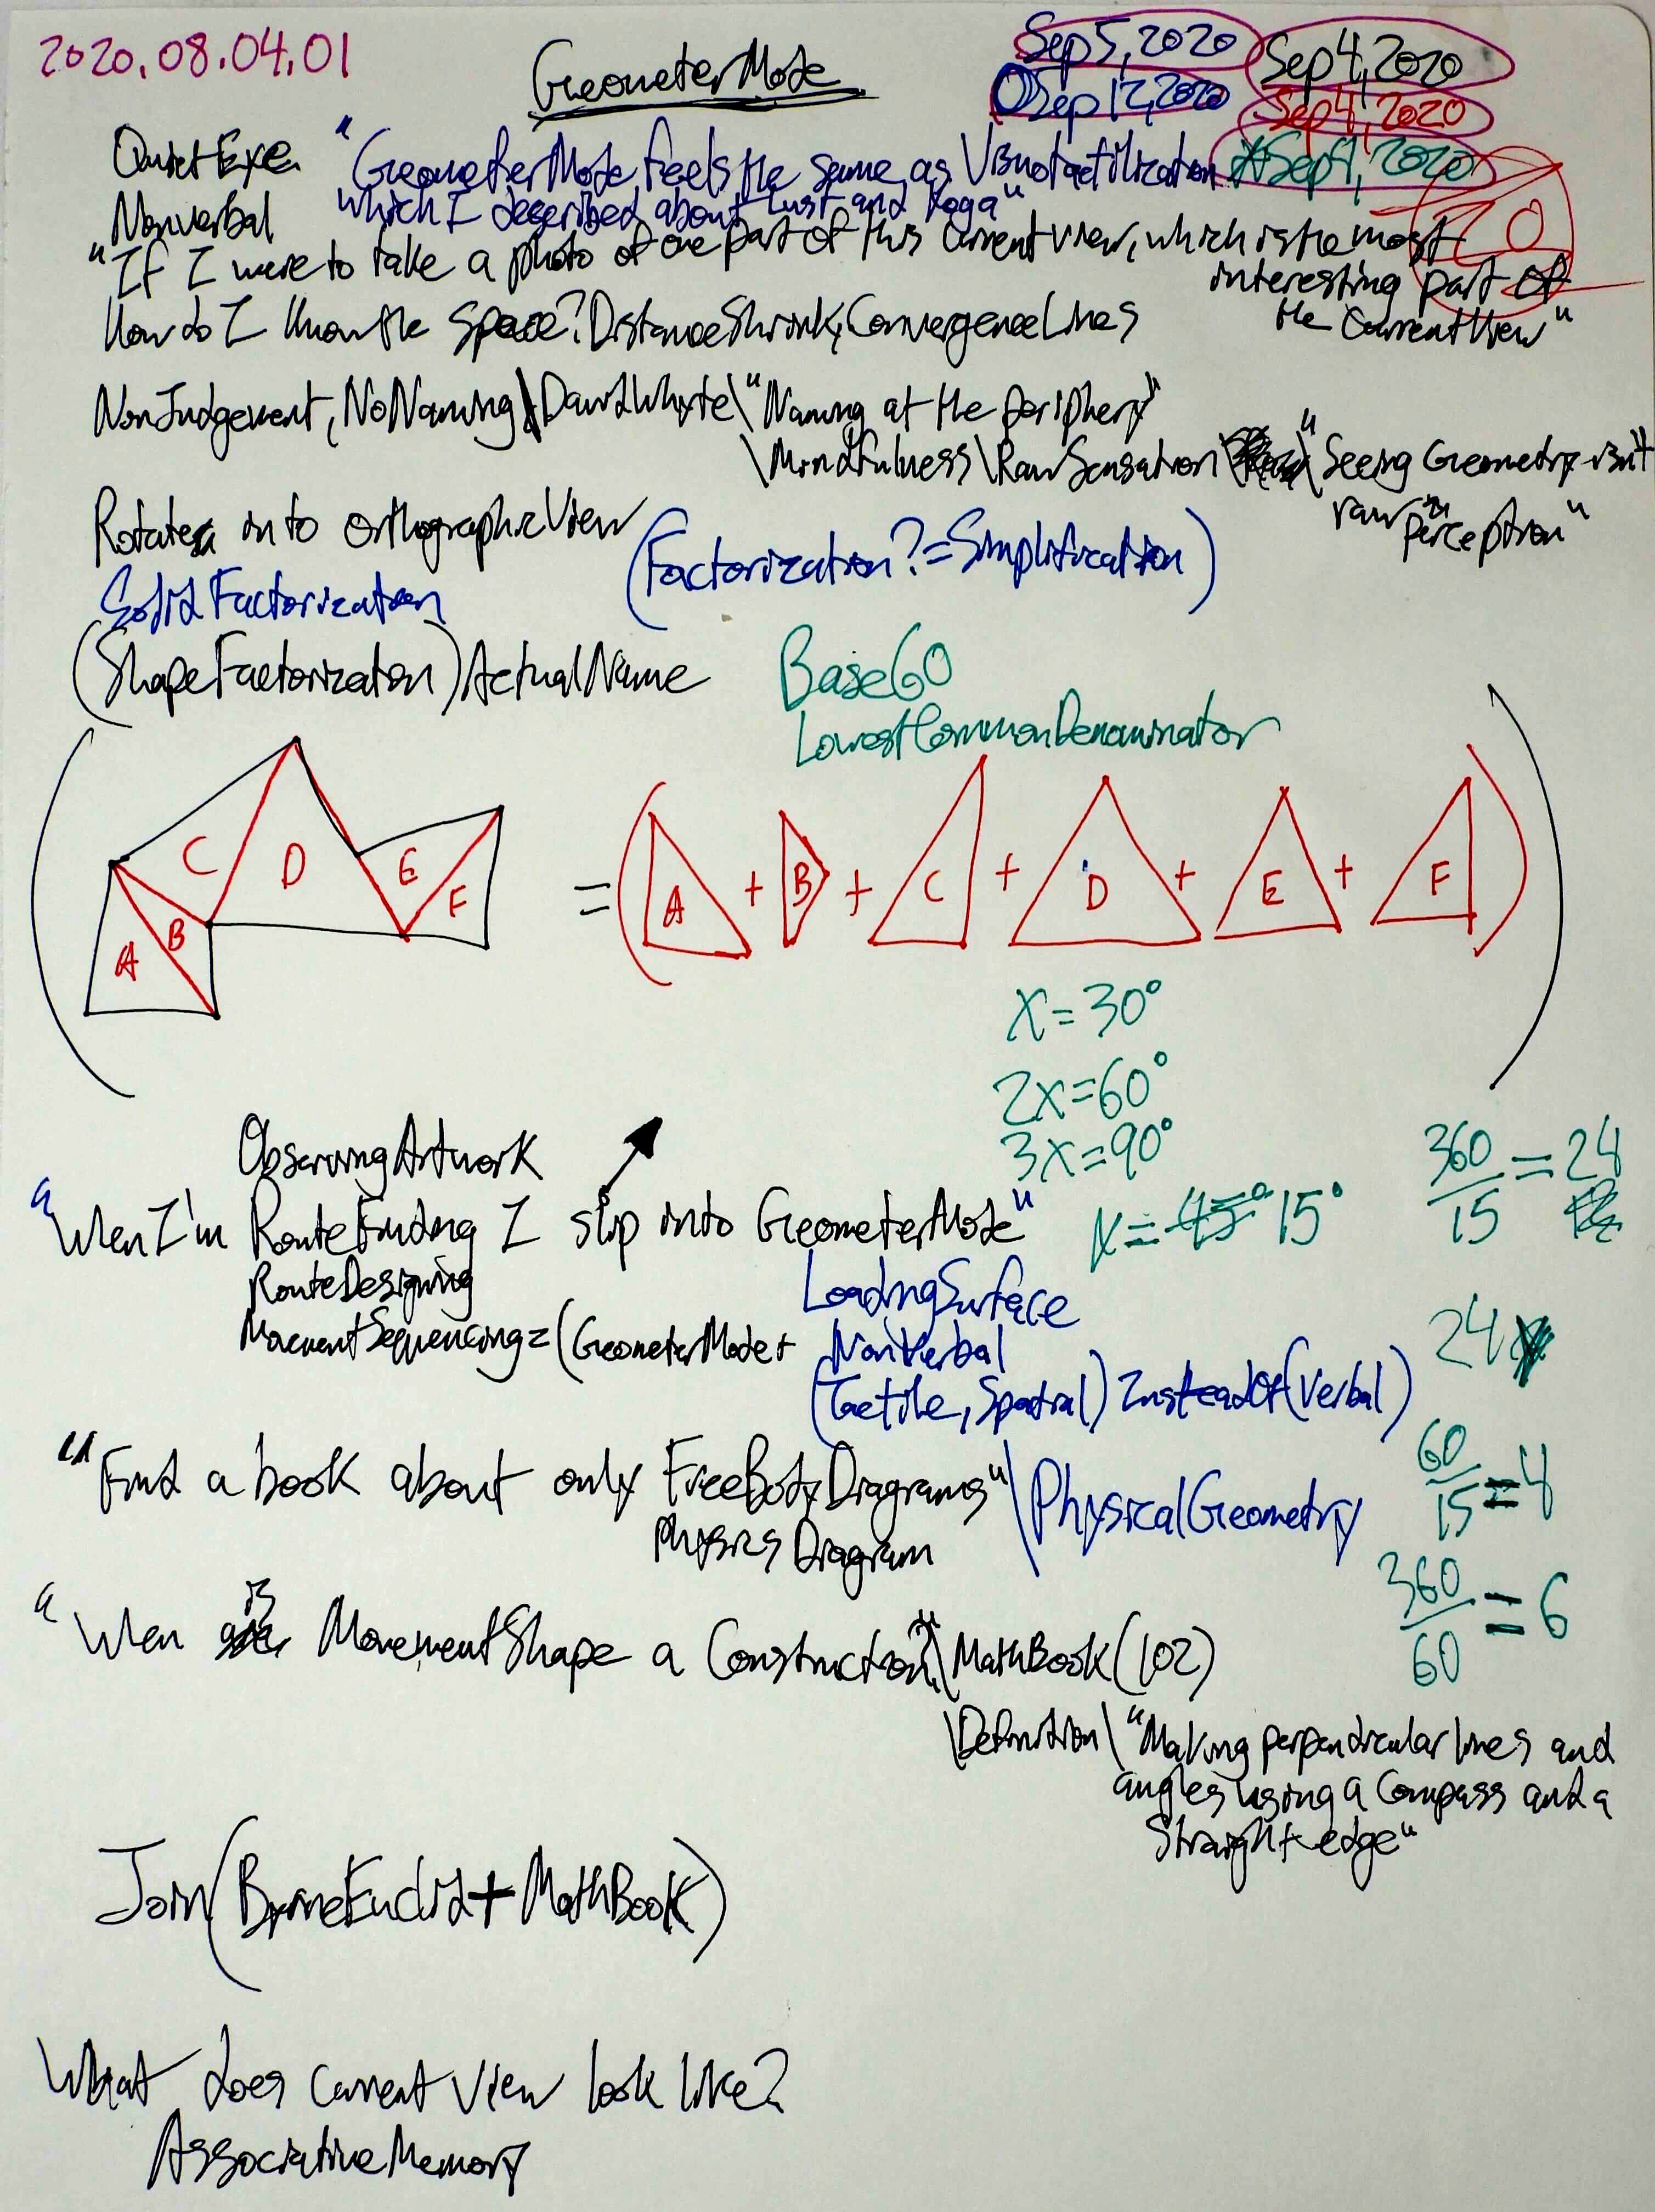 2020.08.04.01
GeometerMode
Sep 5, 2020
Sep 4, 2020
Sep 12, 2020
Sep 4, 2020
Sep 4, 2020
QuietExe
"GeometerMode feels the same as Visuotactilization
which I described about Lust and Yoga"
Nonverbal
"If I were to take a photo of one part of this current view, which is the most
interesting part of
the CurrentView"
How do I know the space? DistanceShrink, ConvergenceLines
NonJudgement, NoNaming\DavidWhyte\"Naming at the periphery"
\Mindfulness\RawSensation\"Seeing Geometry isn't
raw perception"
Rotates into OrthographicView
(Factorization?=Simplification)
SolidFactorization
(ShapeFactorization)ActualName
Base60
LowestCommonDenominator
C D E F A B
= (A + B + C + D + E + F)
X=30°
2X=60°
3X=90°
X=45° 15°
360/15=24
24
60/15=4
360/60=6
ObservingArtwork
"When I'm RouteFinding I slip into GeometerMode"
RouteDesigning
MovementSequencing=(GeometerMode+
LoadingSurface
NonVerbal
(Tactile, Spatial)InsteadOf(Verbal)
"Find a book about only FreeBodyDiagrams"\PhysicalGeometry
Physics Diagram
"When is MovementShape a Construction?"\MathBook(102)
\Definition\"Making perpendicular lines and
angles using a Compass and a
Straight-edge"
Join(ByrneEuclid+MathBook)
What does current view look like?
AssociativeMemory